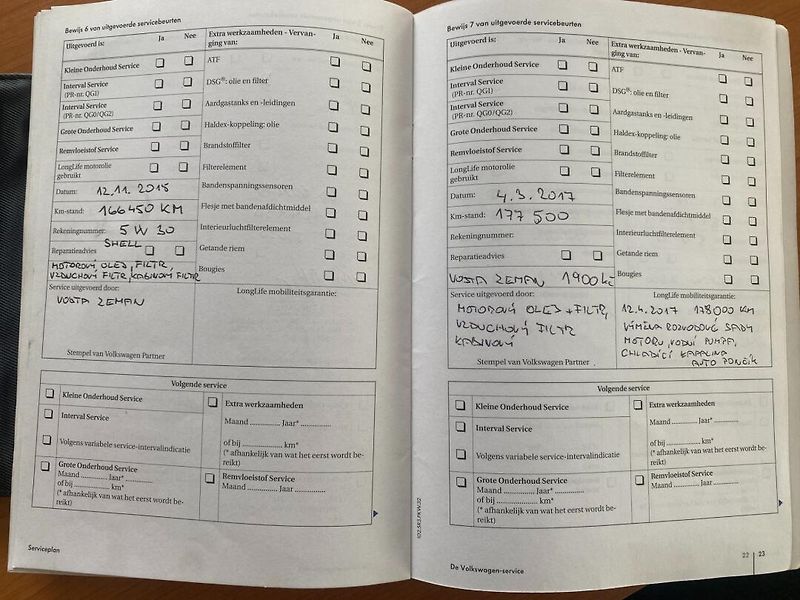 Bewijs 6 van uitgevoerde servicebeurten
Uitgevoerd is: Ja Nee
Extra werkzaamheden - Vervan-
ging van: Ja Nee
Kleine Onderhoud Service
Interval Service
(PR-nr. QGI)
Interval Service
(PR-nr. QG0/QG2)
Grote Onderhoud Service
Remvloeistof Service
LongLife motorolie
gebruikt
Datum: 12.11.2015
Km-stand: 166450 KM
Rekeningnummer: 5W30
SHELL
Reparatieadvies
MOTOROVÝ OLEJ, FILTR,
VZDUCHOVÝ FILTR, KABINOVÝ FILTR
ATF
DSG®: olie en filter
Aardgastanks en -leidingen
Haldex-koppeling: olie
Brandstoffilter
Filterelement
Bandenspanningssensoren
Flesje met bandenafdichtmiddel
Interieurluchtfilterelement
Getande riem
Bougies
Service uitgevoerd door:
VOSTA ZEMAN
Stempel van Volkswagen Partner
LongLife mobiliteitsgarantie:
Volgende service
Kleine Onderhoud Service
Interval Service
Volgens variabele service-intervalindicatie
Grote Onderhoud Service
Maand ............ Jaar* ............
of bij ............ km*
(* afhankelijk van wat het eerst wordt be-
reikt)
Extra werkzaamheden
Maand ............ Jaar* ............
of bij ............ km*
(* afhankelijk van wat het eerst wordt be-
reikt)
Remvloeistof Service
Maand ............ Jaar ............
Serviceplan
Bewijs 7 van uitgevoerde servicebeurten
Uitgevoerd is: Ja Nee
Extra werkzaamheden - Vervan-
ging van: Ja Nee
Kleine Onderhoud Service
Interval Service
(PR-nr. QGI)
Interval Service
(PR-nr. QG0/QG2)
Grote Onderhoud Service
Remvloeistof Service
LongLife motorolie
gebruikt
Datum: 4.3.2017
Km-stand: 177 500
Rekeningnummer:
Reparatieadvies
VOSTA ZEMAN 1900 Kč
ATF
DSG®: olie en filter
Aardgastanks en -leidingen
Haldex-koppeling: olie
Brandstoffilter
Filterelement
Bandenspanningssensoren
Flesje met bandenafdichtmiddel
Interieurluchtfilterelement
Getande riem
Bougies
Service uitgevoerd door:
MOTOROVÝ OLEJ + FILTR,
VZDUCHOVÝ FILTR
KABINOVÝ
Stempel van Volkswagen Partner
LongLife mobiliteitsgarantie:
12.4.2017 178000 KM
VÝMĚNA ROZVODOVÉ SADY
MOTORU, VODNÍ PUMPA,
CHLADÍCÍ KAPALINA
AUTO
Volgende service
Kleine Onderhoud Service
Interval Service
Volgens variabele service-intervalindicatie
Grote Onderhoud Service
Maand ............ Jaar* ............
of bij ............ km*
(* afhankelijk van wat het eerst wordt be-
reikt)
Extra werkzaamheden
Maand ............ Jaar* ............
of bij ............ km*
(* afhankelijk van wat het eerst wordt be-
reikt)
Remvloeistof Service
Maand ............ Jaar ............
De Volkswagen-service
22 23